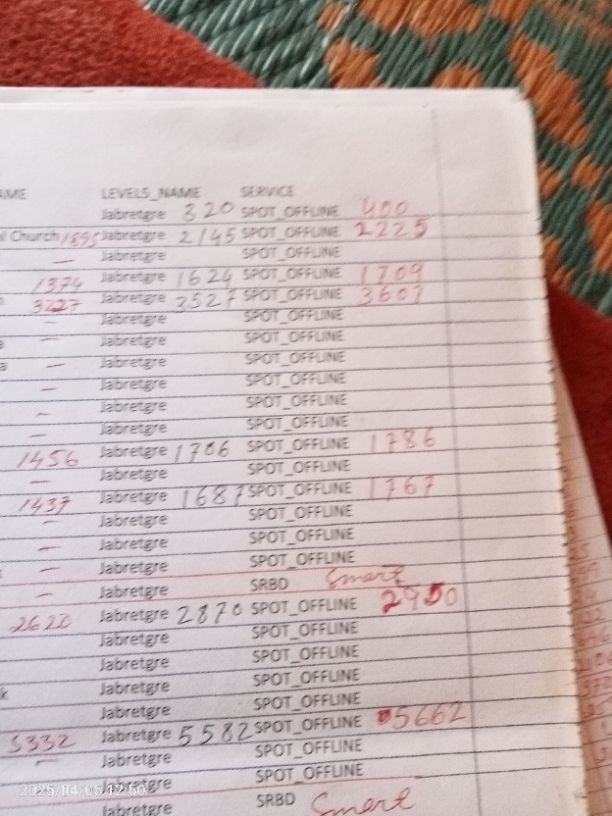 AME LEVELS_NAME SERVICE
Jabretgre 320 SPOT_OFFLINE 400
al Church 1895 Jabretgre 2145 SPOT_OFFLINE 2225
— Jabretgre SPOT_OFFLINE
1374 Jabretgre 1624 SPOT_OFFLINE 1709
3227 Jabretgre 3527 SPOT_OFFLINE 3607
— Jabretgre SPOT_OFFLINE
— Jabretgre SPOT_OFFLINE
a — Jabretgre SPOT_OFFLINE
— Jabretgre SPOT_OFFLINE
— Jabretgre SPOT_OFFLINE
— Jabretgre SPOT_OFFLINE
1456 Jabretgre 1706 SPOT_OFFLINE 1786
— Jabretgre SPOT_OFFLINE
1437 Jabretgre 1687 SPOT_OFFLINE 1767
— Jabretgre SPOT_OFFLINE
— Jabretgre SPOT_OFFLINE
— Jabretgre SPOT_OFFLINE
— Jabretgre SRBD Smart
2620 Jabretgre 2870 SPOT_OFFLINE 2950
Jabretgre SPOT_OFFLINE
Jabretgre SPOT_OFFLINE
k Jabretgre SPOT_OFFLINE
Jabretgre SPOT_OFFLINE
5332 Jabretgre 5582 SPOT_OFFLINE 5662
— Jabretgre SPOT_OFFLINE
Jabretgre SPOT_OFFLINE
Jabretgre SRBD Smart
2025/04/05 12:50